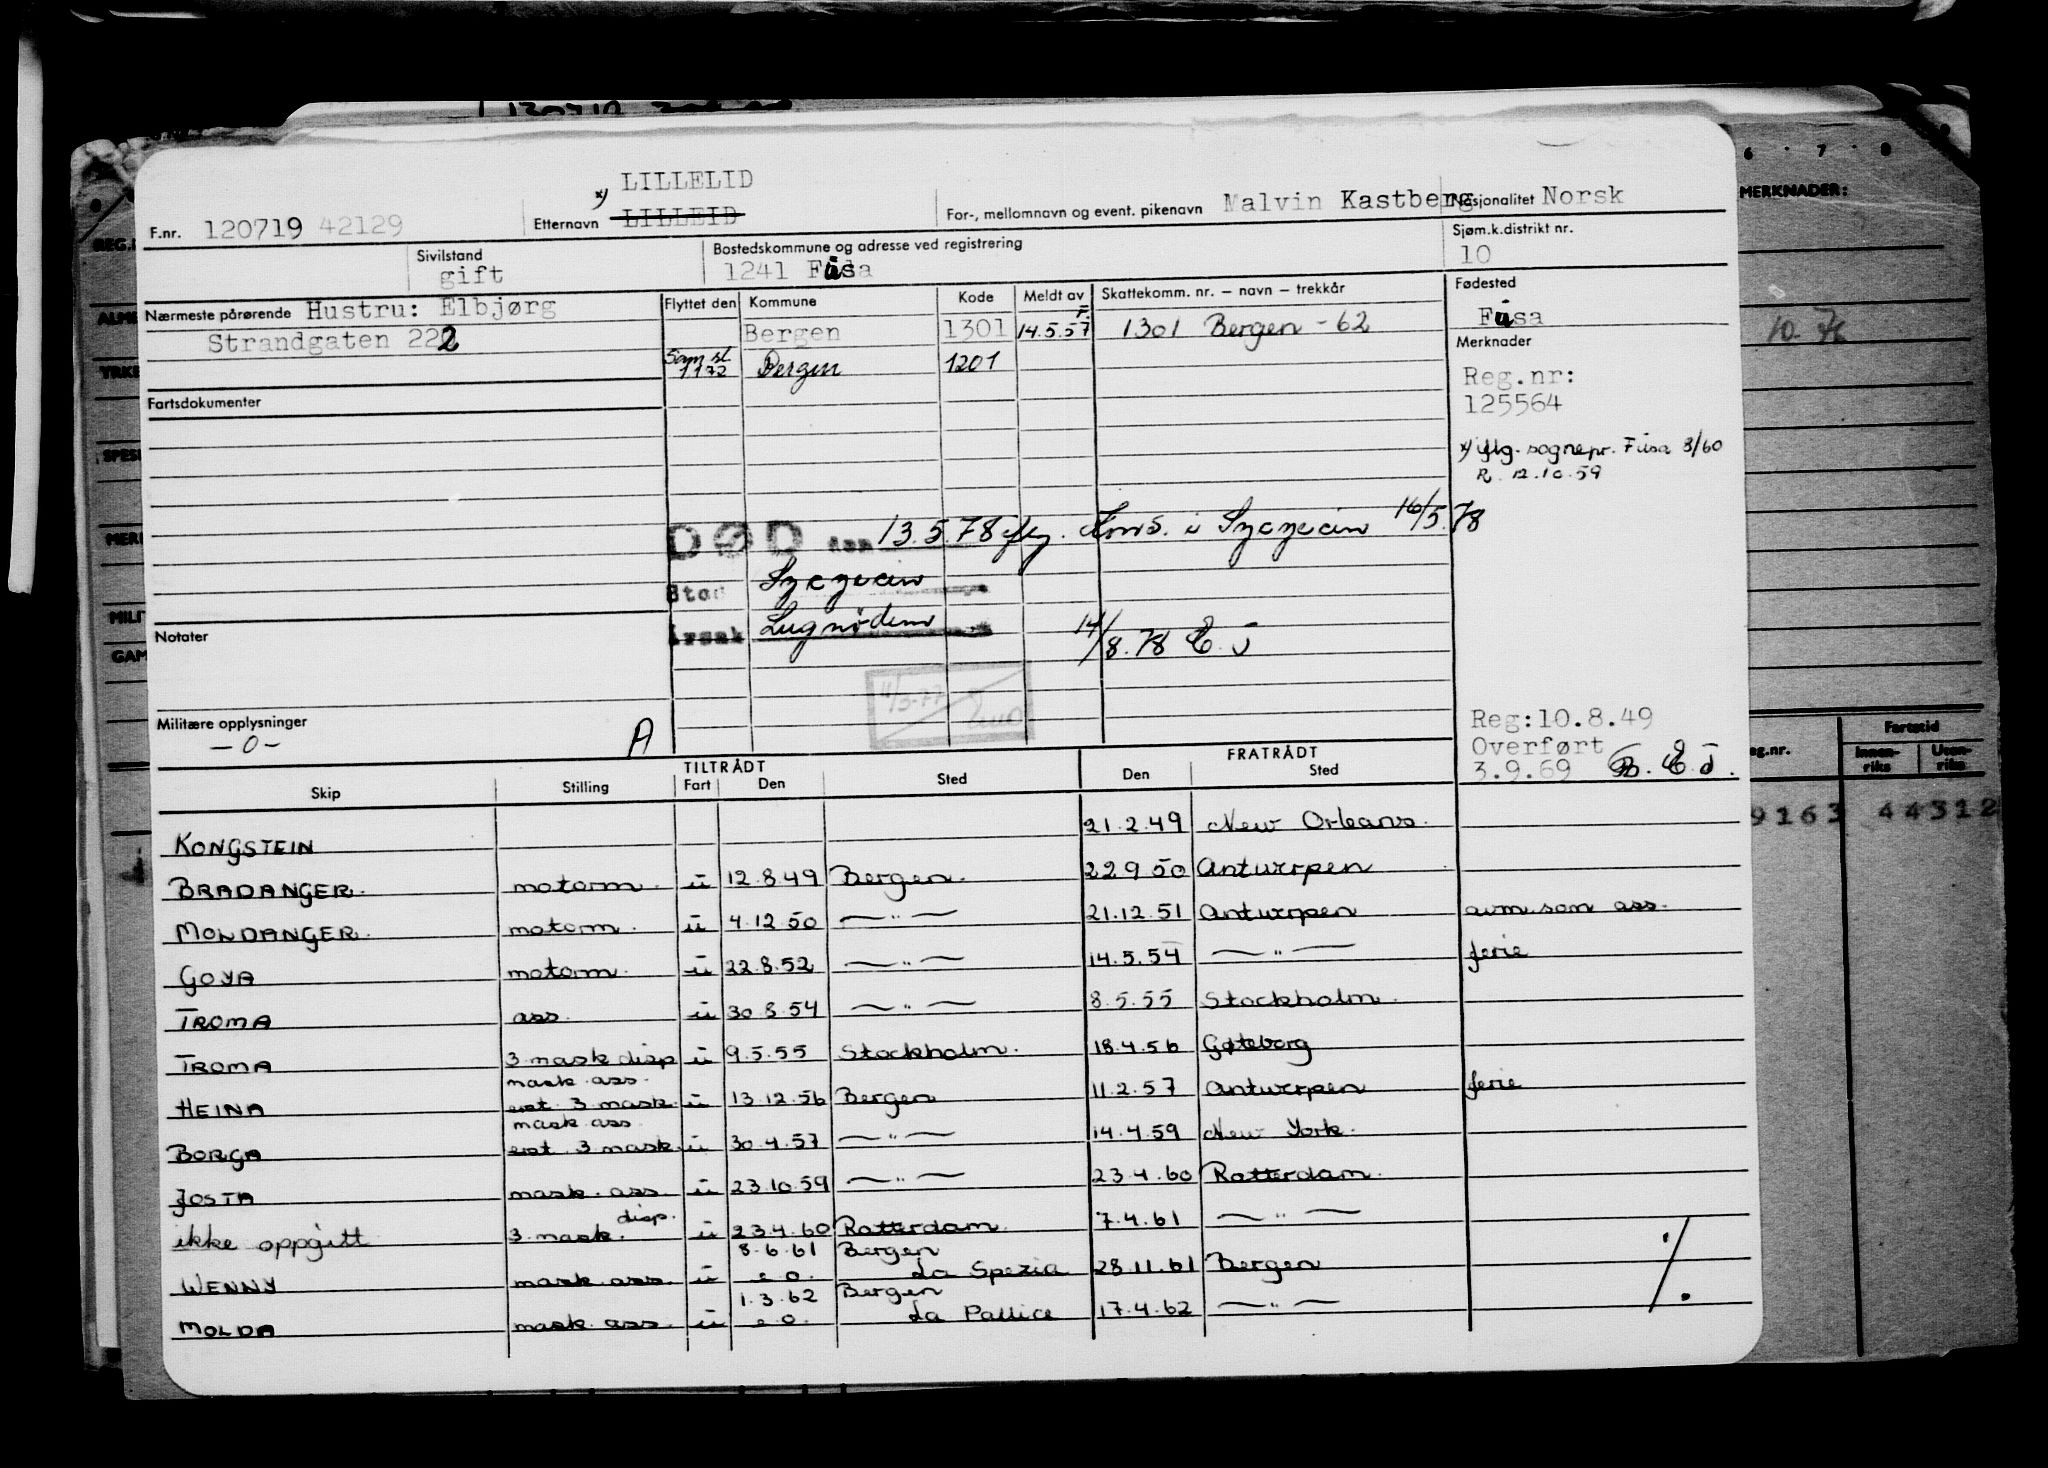 LILLELID
F.nr. 120719 42129 Etternavn x) LILLEID For-, mellomnavn og event. pikenavn Malvin Kastberg Nasjonalitet Norsk
Sivilstand gift Bostedskommune og adresse ved registrering 1241 Fusa Sjøm.k.distrikt nr. 10
Nærmeste pårørende Hustru: Elbjørg Flyttet den Kommune Kode Meldt av Skattekomm. nr. – navn – trekkår Fødested
Strandgaten 222 Bergen 1301 F. 14.5.57 1301 Bergen - 62 Fusa
Som sl 1172 Bergen 1201 Merknader
Reg.nr:
Fartsdokumenter 125564
x) iflg. sognepr. Fusa 3/60
R. 12.10.59
DØD den 13.5.78 iflg. Kons. i Szczecin 16/5.78
Sted Szczecin
Årsak
Notater 14/8.78 E.J
11/3-77
Militære opplysninger Reg:10.8.49
-0- A Overført
3.9.69 E.J.
TILTRÅDT FRATRÅDT
Skip Stilling Fart Den Sted Den Sted
KONGSTEIN 21.2.49 New Orleans.
BRADANGER. motorm. u 12.8.49 Bergen. 22.9.50 Antwerpen
MONDANGER. motorm. u 4.12.50 — " — 21.12.51 Antwerpen avm. som ass.
GOYA motorm. u 22.8.52 — " — 14.5.54 — " — ferie
TROMA ass. u 30.8.54 — " — 8.5.55 Stockholm.
TROMA 3. mask disp u 9.5.55 Stockholm. 18.4.56 Gøteborg
mask. ass.
HEINA est. 3 mask. u 13.12.56 Bergen 11.2.57 Antwerpen ferie
mask. ass.
BORGA est. 3 mask. u 30.4.57 — " — 14.4.59 New York.
JOSTA mask. ass. u 23.10.59 — " — 23.4.60 Rotterdam.
ikke oppgitt 3. mask. disp. u 23.4.60 Rotterdam. 7.4.61 — " —
8.6.61 Bergen
WENNY mask. ass. u e.o. La Spezia 28.11.61 Bergen
1.3.62 Bergen
MOLDA mask. ass. u e.o. La Pallice 17.4.62 — " — ./.
6 . 7 . 8
MERKNADER:
Fartstid
Innen-riks Uten-riks
9163 44312